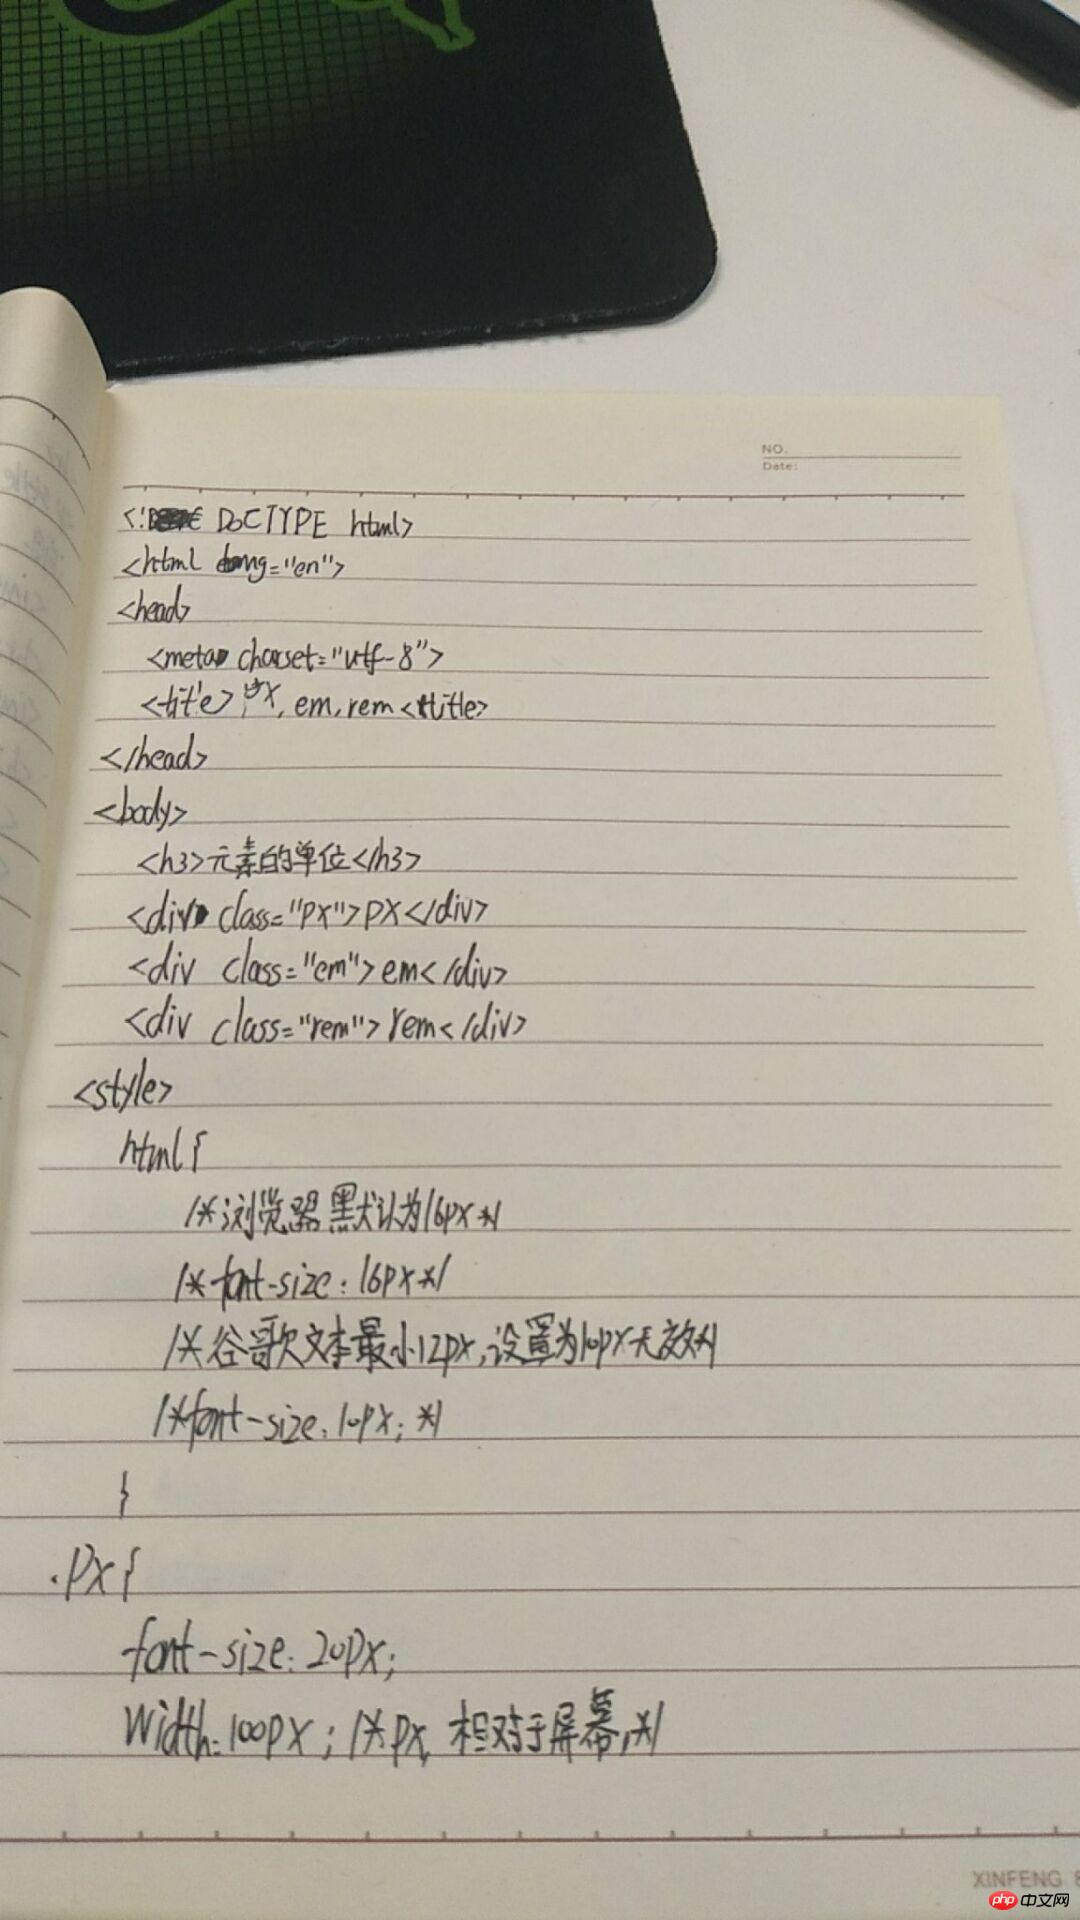 NO.
Date:
<! DOCTYPE html>
<html lang="en">
<head>
<meta charset="utf-8">
<title>px, em, rem<title>
</head>
<body>
<h3>元素的单位</h3>
<div class="px">px</div>
<div class="em">em</div>
<div class="rem">rem</div>
<style>
html{
/*浏览器默认为16px*/
/*font-size:16px*/
/*谷歌文本最小12px,设置为10px无效*/
/*font-size:10px;*/
}
.px{
font-size:20px;
width:100px;/*px,相对于屏幕,*/
XINFENG
php 中文网